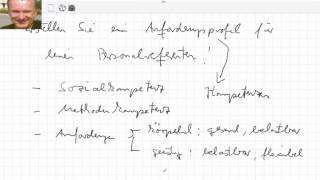 Erstellen Sie ein Anforderungsprofil für
einen Personalreferenten!
- Sozialkompetenz Kompetenzen
- Methodenkompetenz
- Anforderungen körperlich: gesund, belastbar
geistig: belastbar, flexibel